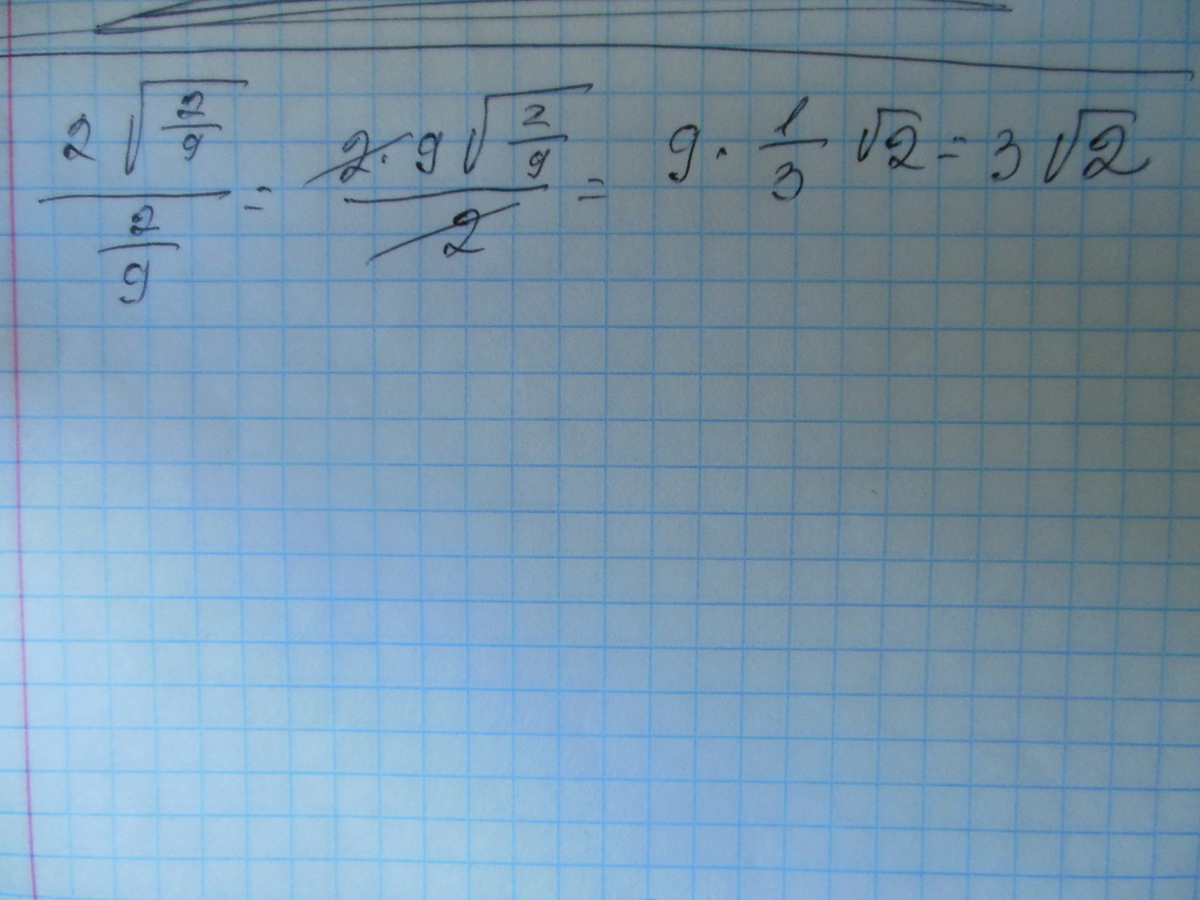 \frac{2\sqrt{\frac{2}{9}}}{\frac{2}{9}} = \frac{2 \cdot 9\sqrt{\frac{2}{9}}}{2} = 9 \cdot \frac{1}{3}\sqrt{2} = 3\sqrt{2}